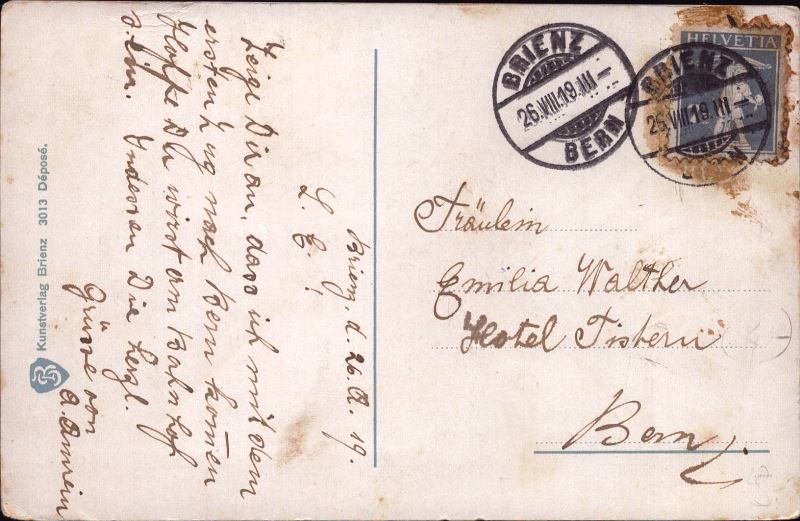 Brienz, d. 26. A. 19.
L. E.!
Zeige Dir an, dass ich mit dem
ersten Zug nach Bern kommen
Hoffe Du wirst am Bahnhof
sein. Indessen Die herzl.
Grüsse von
A. Amrein
Kunstverlag Brienz 3013 Déposé.
BRIENZ
26.VIII.19.III
BERN
BRIENZ
26.VIII.19.III
HELVETIA
Fräulein
Emilia Walther
Hotel Fistern
Bern